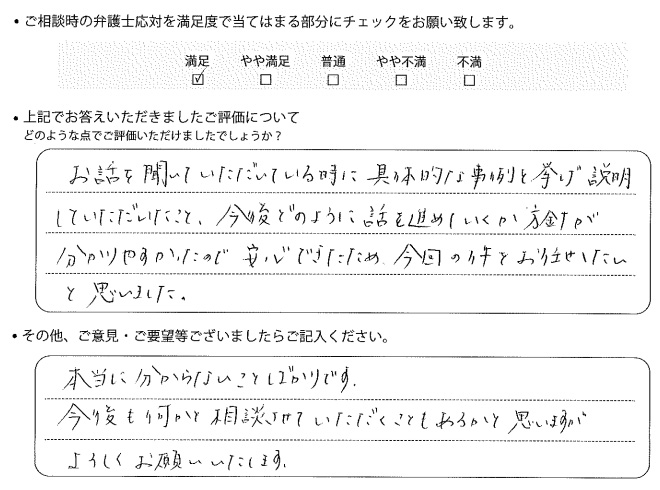 ・ご相談時の弁護士応対を満足度で当てはまる部分にチェックをお願い致します。
満足 やや満足 普通 やや不満 不満
☑ □ □ □ □
・上記でお答えいただきましたご評価について
どのような点でご評価いただけましたでしょうか？
お話を聞いていただいている時に具体的な事例を挙げ説明
していただいたこと、今後どのように話を進めていくか方針が
分かりやすかったので安心できたため今回の件をお任せしたい
と思いました。
・その他、ご意見・ご要望等ございましたらご記入ください。
本当に分からないことばかりです。
今後も何かと相談させていただくこともあるかと思いますが
よろしくお願いいたします。